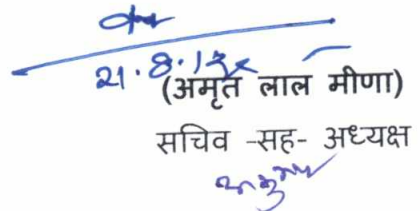 21.8.13
(अमृत लाल मीणा)
सचिव -सह- अध्यक्ष